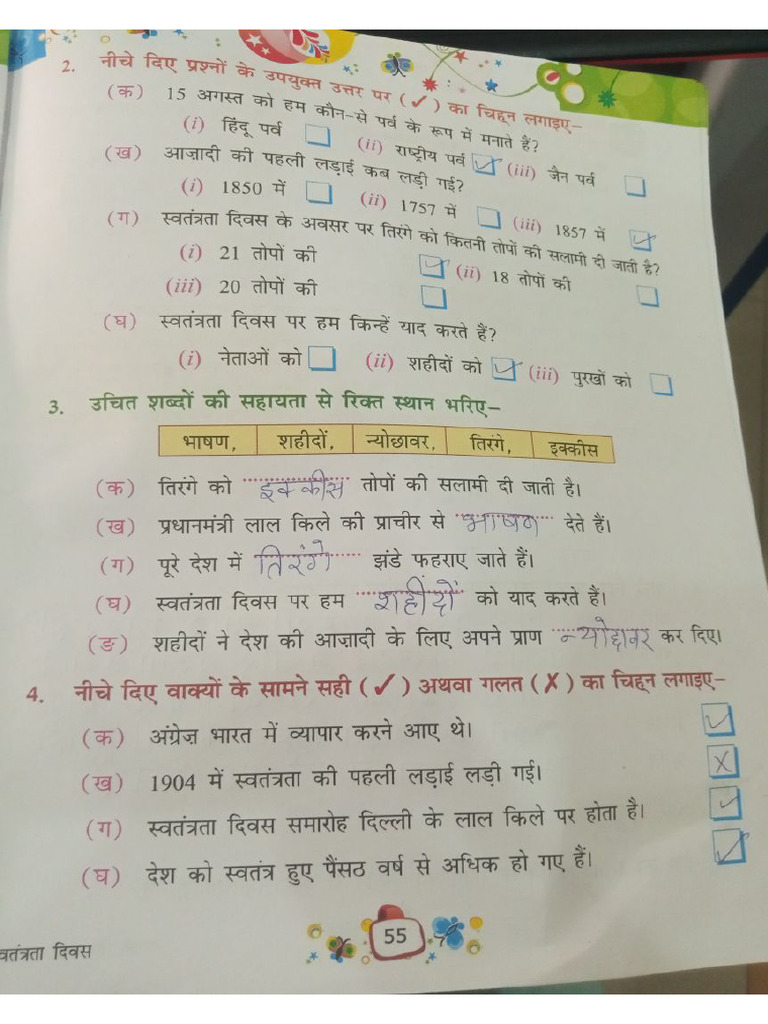 2. नीचे दिए प्रश्नों के उपयुक्त उत्तर पर (✓) का चिह्न लगाइए–
(क) 15 अगस्त को हम कौन-से पर्व के रूप में मनाते हैं?
(i) हिंदू पर्व (ii) राष्ट्रीय पर्व ✓ (iii) जैन पर्व
(ख) आज़ादी की पहली लड़ाई कब लड़ी गई?
(i) 1850 में (ii) 1757 में (iii) 1857 में ✓
(ग) स्वतंत्रता दिवस के अवसर पर तिरंगे को कितनी तोपों की सलामी दी जाती है?
(i) 21 तोपों की ✓ (ii) 18 तोपों की
(iii) 20 तोपों की
(घ) स्वतंत्रता दिवस पर हम किन्हें याद करते हैं?
(i) नेताओं को (ii) शहीदों को ✓ (iii) पुरखों को
3. उचित शब्दों की सहायता से रिक्त स्थान भरिए–
भाषण, शहीदों, न्योछावर, तिरंगे, इक्कीस
(क) तिरंगे को इक्कीस तोपों की सलामी दी जाती है।
(ख) प्रधानमंत्री लाल किले की प्राचीर से भाषण देते हैं।
(ग) पूरे देश में तिरंगे झंडे फहराए जाते हैं।
(घ) स्वतंत्रता दिवस पर हम शहींदों को याद करते हैं।
(ङ) शहीदों ने देश की आज़ादी के लिए अपने प्राण न्योछावर कर दिए।
4. नीचे दिए वाक्यों के सामने सही (✓) अथवा गलत (✗) का चिह्न लगाइए–
(क) अंग्रेज़ भारत में व्यापार करने आए थे। ✓
(ख) 1904 में स्वतंत्रता की पहली लड़ाई लड़ी गई। ✗
(ग) स्वतंत्रता दिवस समारोह दिल्ली के लाल किले पर होता है। ✓
(घ) देश को स्वतंत्र हुए पैंसठ वर्ष से अधिक हो गए हैं। ✓
55
वतंत्रता दिवस